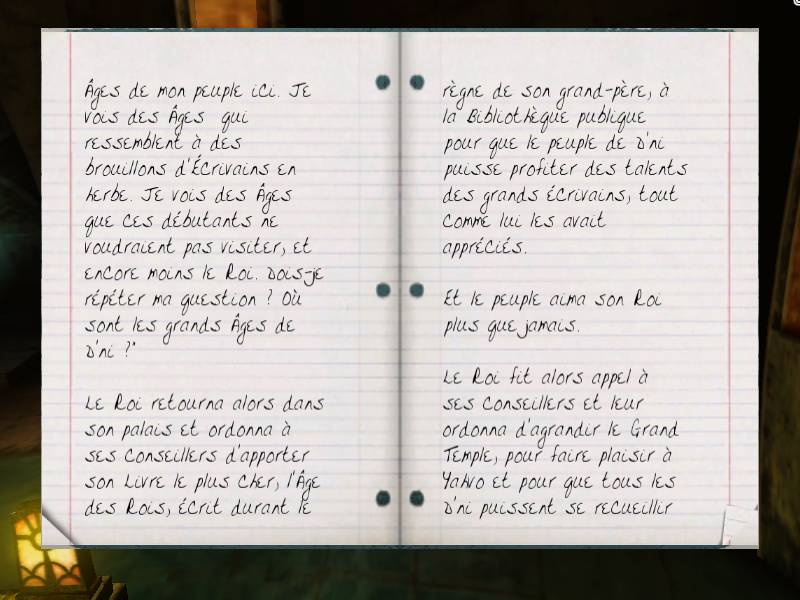 Âges de mon peuple ici. Je
vois des Âges qui
ressemblent à des
brouillons d'Écrivains en
herbe. Je vois des Âges
que ces débutants ne
voudraient pas visiter, et
encore moins le Roi. Dois-je
répéter ma question ? Où
sont les grands Âges de
D'ni ?"
Le Roi retourna alors dans
son palais et ordonna à
ses Conseillers d'apporter
son Livre le plus cher, l'Âge
des Rois, écrit durant le
règne de son grand-père, à
la Bibliothèque publique
pour que le peuple de D'ni
puisse profiter des talents
des grands Écrivains, tout
comme lui les avait
appréciés.
Et le peuple aima son Roi
plus que jamais.
Le Roi fit alors appel à
ses Conseillers et leur
ordonna d'agrandir le Grand
Temple, pour faire plaisir à
Yahvo et pour que tous les
D'ni puissent se recueillir